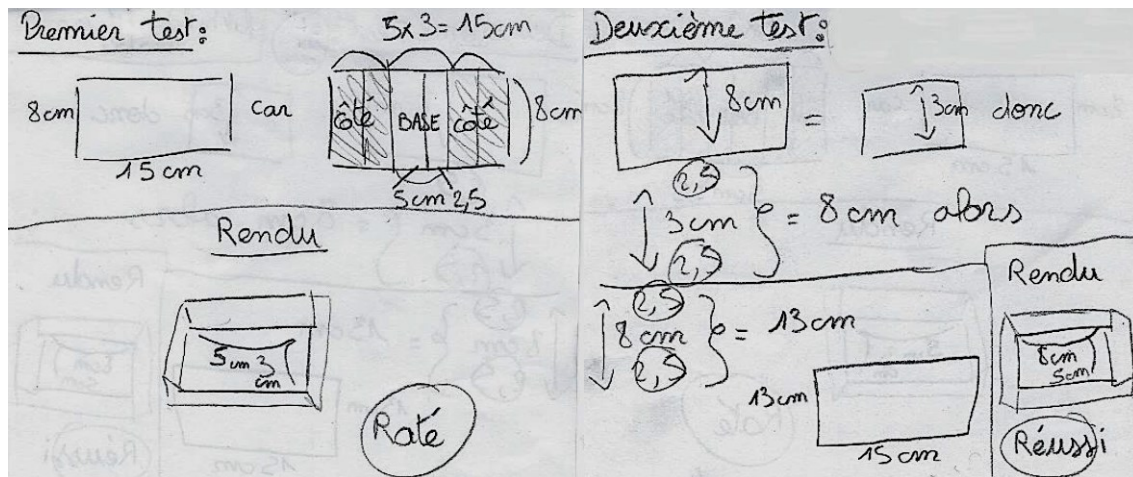 Premier test:
5x3=15cm
8cm
car
côté
BASE
côté
8cm
15cm
5cm 2,5
Rendu
5cm 3
cm
Raté
Deuxième test:
8cm
=
3cm
donc
2,5
3cm
2,5
= 8cm alors
2,5
8cm
2,5
= 13cm
13cm
15cm
Rendu
8cm
5cm
Réussi